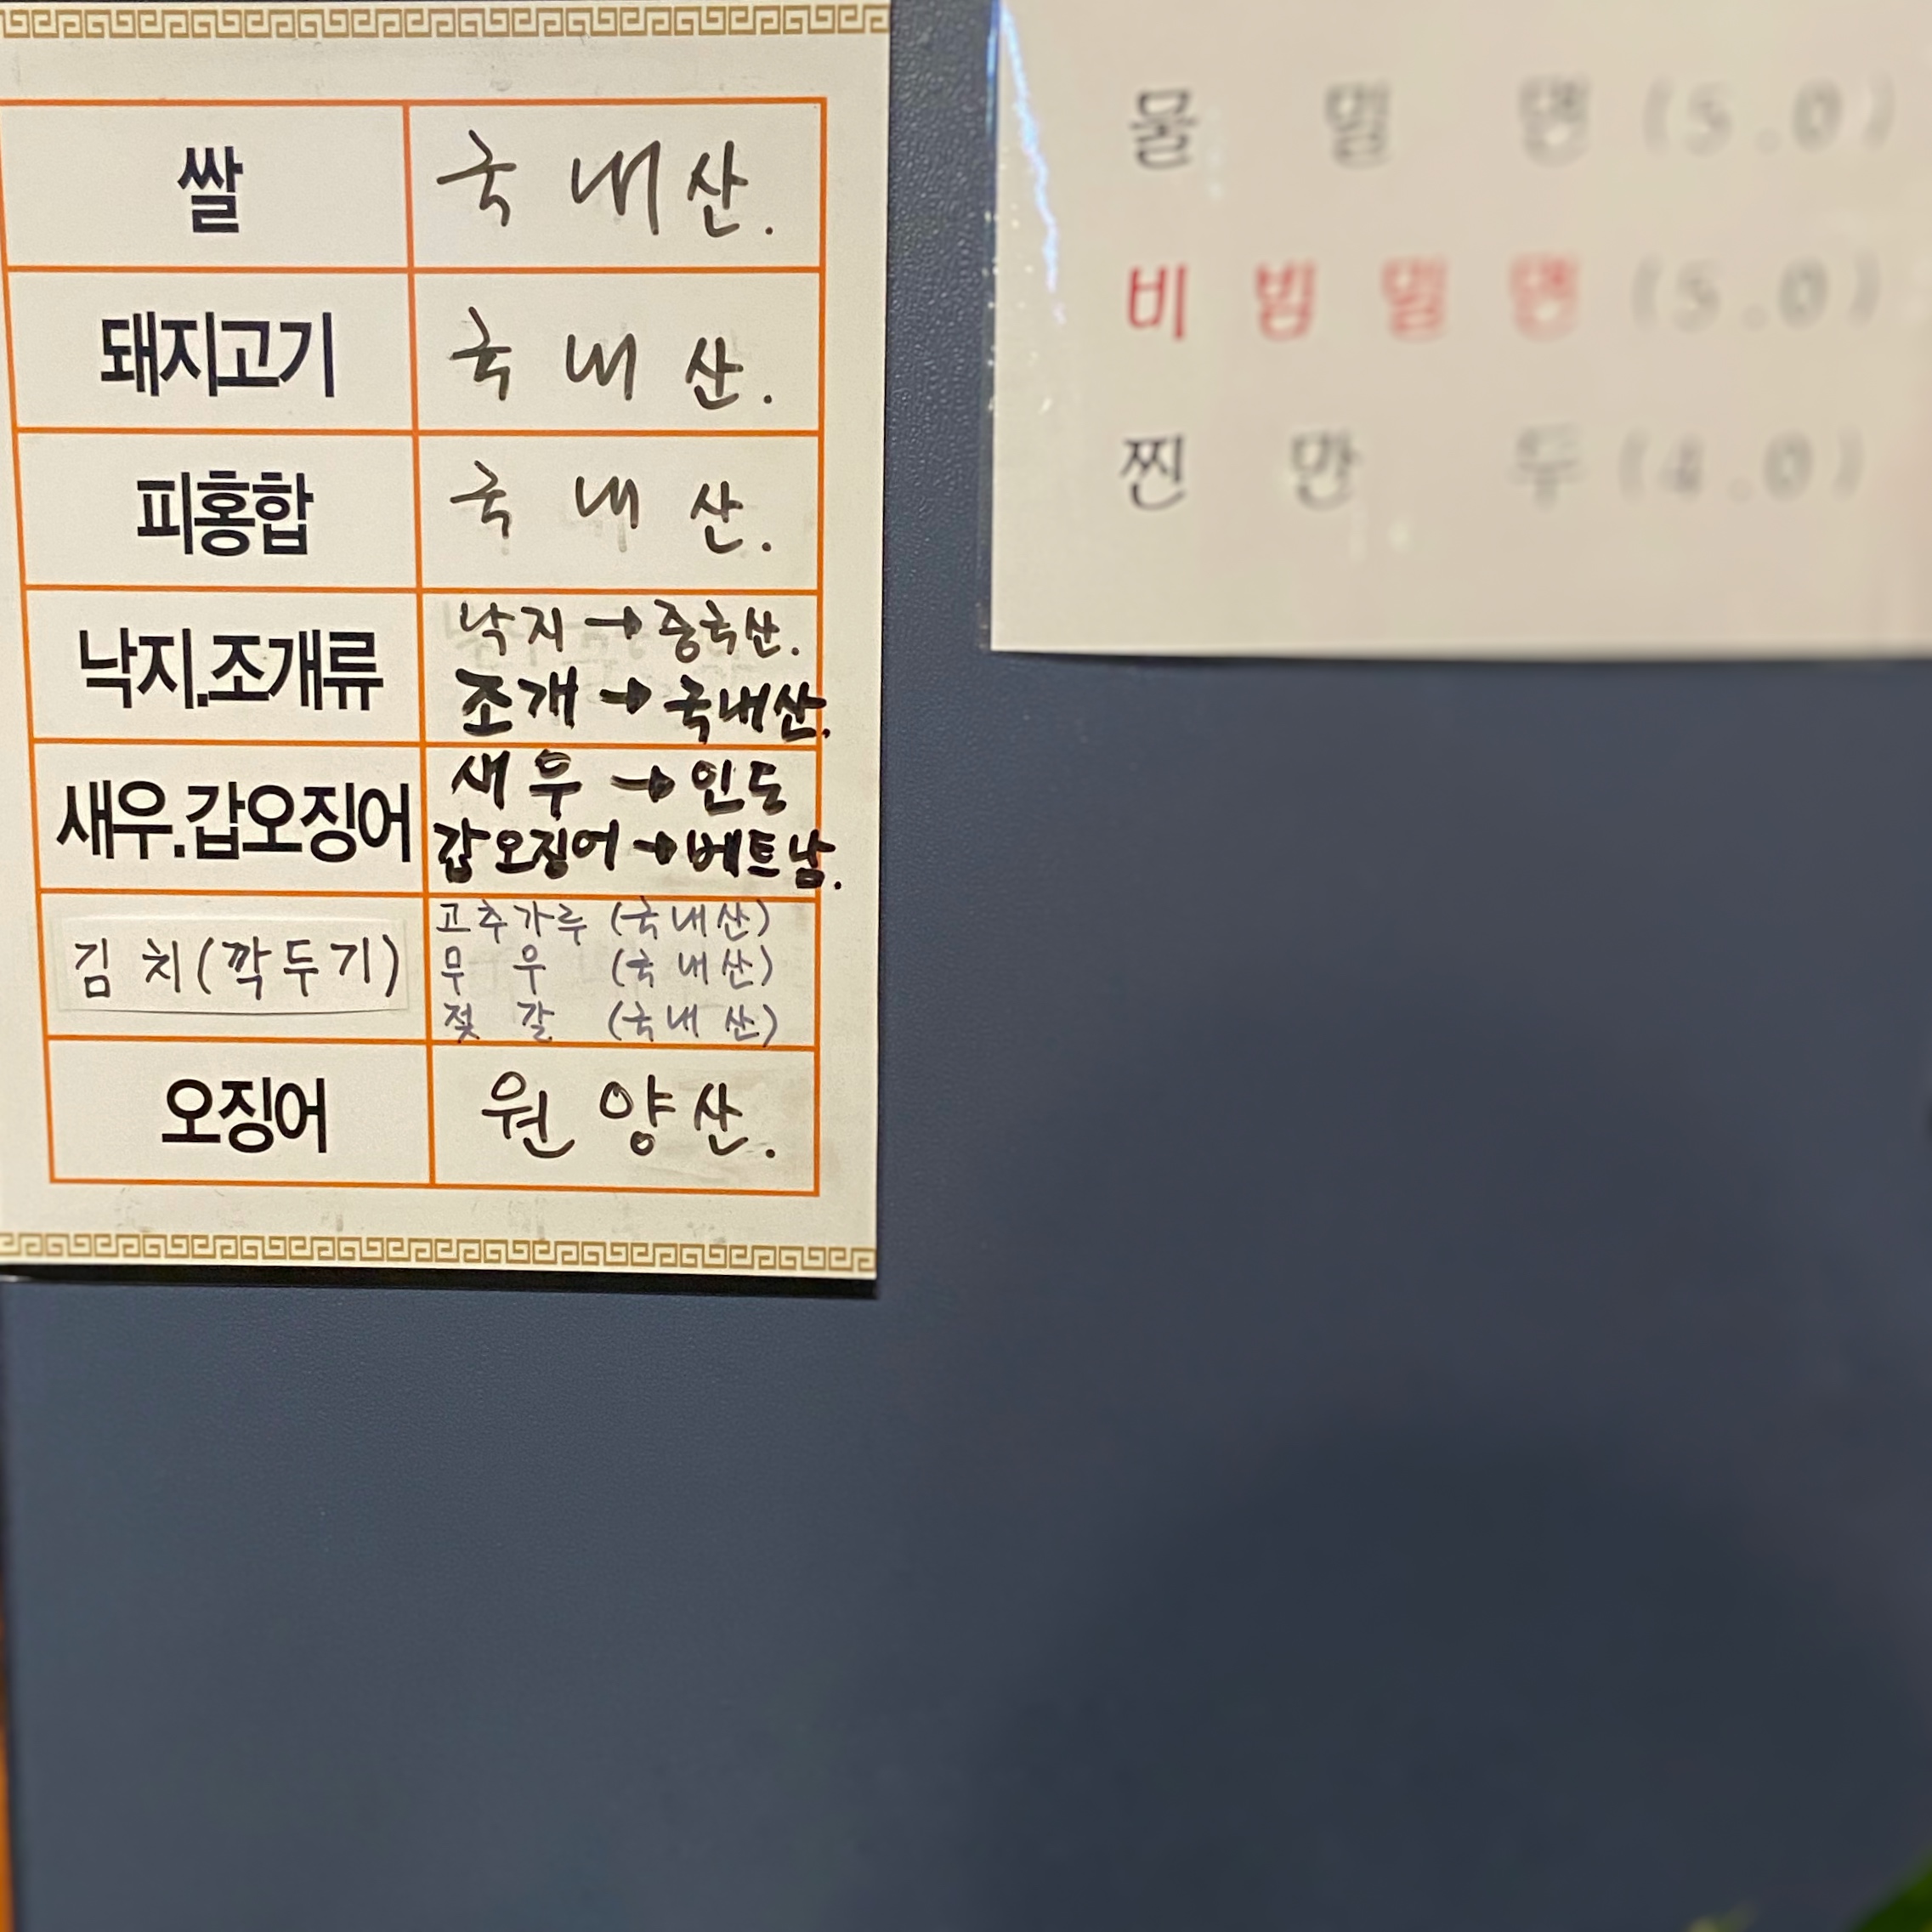 쌀 국내산.
돼지고기 국내산.
피홍합 국내산.
낙지.조개류 낙지→중국산.
조개→국내산.
새우.갑오징어 새우→인도
갑오징어→베트남.
김치(깍두기) 고추가루 (국내산)
무우 (국내산)
젖갈 (국내산)
오징어 원양산.
물밀면(5.0)
비빔밀면(5.0)
찐만두(4.0)